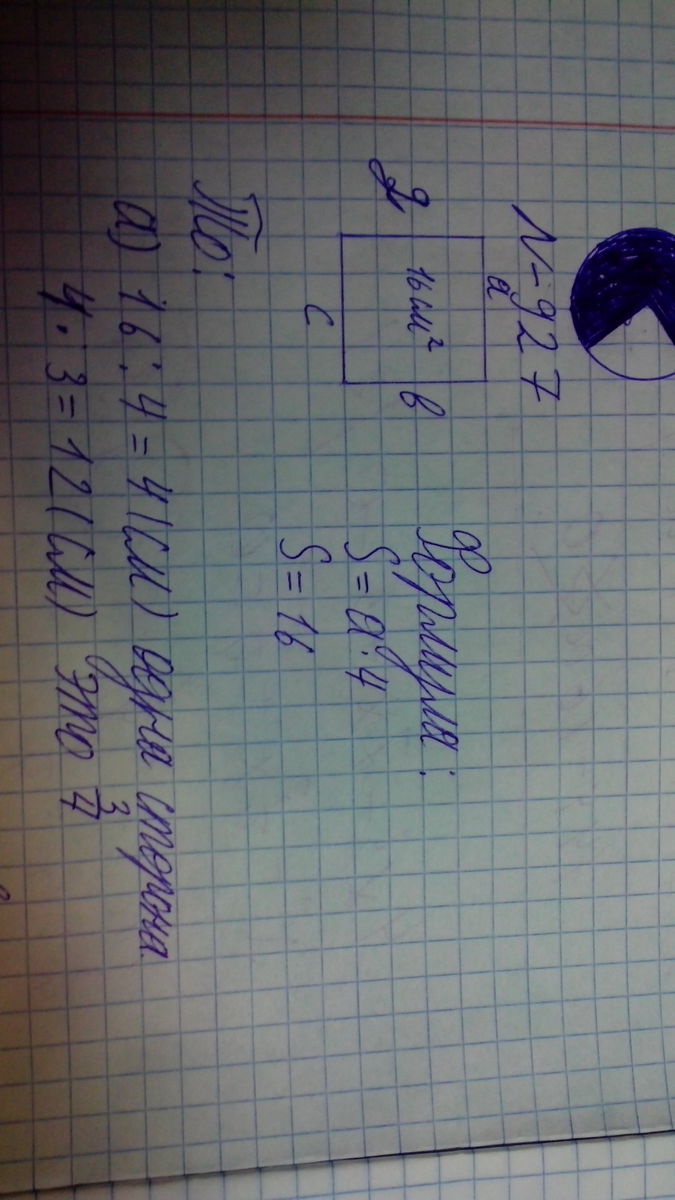 N-927
a
16 см²
в
с
д
Формула:
S = a · 4
S = 16
То:
а) 16 : 4 = 4 (см) одна сторона
4 · 3 = 12 (см) это 3/4